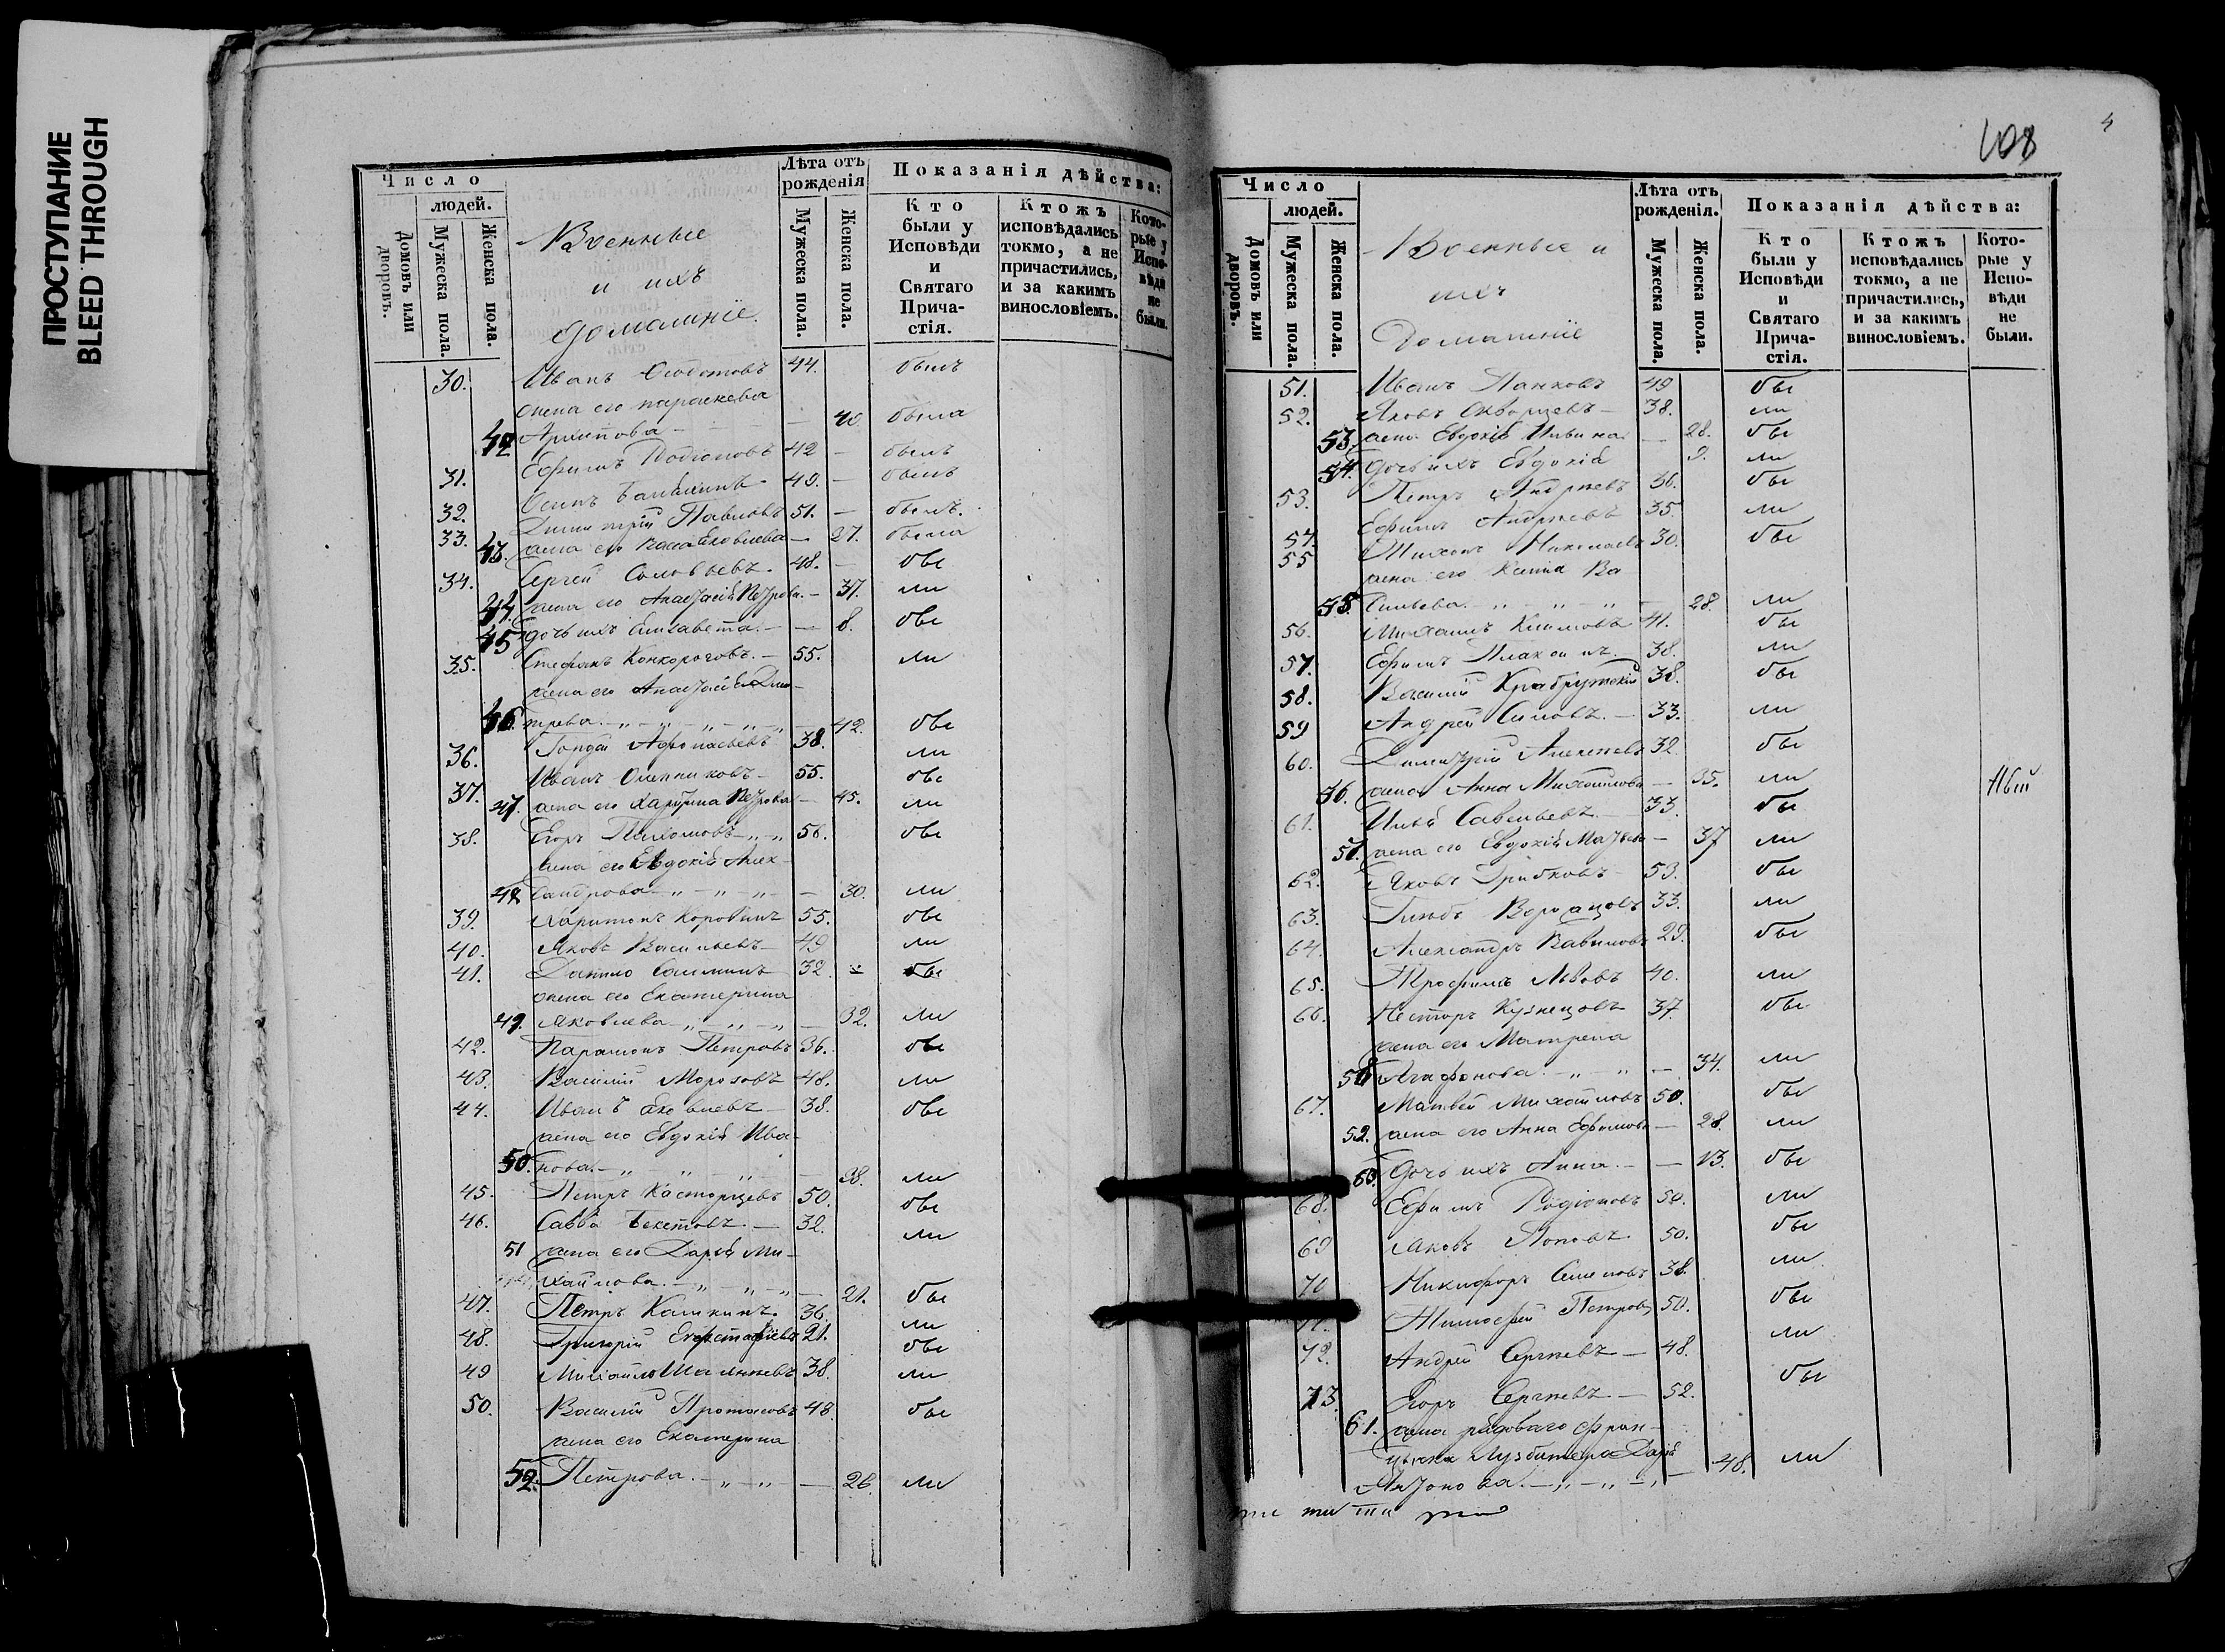 ПРОСТУПАНИЕ
BLEED THROUGH
Число
людей.
Домовъ или дворовъ.
Мужеска пола.
Женска пола.
Военные
и ихъ
домашніе.
Лѣта отъ рожденія
Мужеска пола.
Женска пола.
Показанія дѣйства:
Кто были у Исповѣди и Святаго Причастія.
Ктожъ исповѣдались токмо, а не причастились, и за какимъ винословіемъ.
Которые у Исповѣди не были.
30. Иванъ 44. былъ
жена его параскева
42 Архипова — 40 была
31. Ефимъ Родіоновъ 42 — былъ
32. Осипъ 40. — былъ
33. Димитрій Павловъ 51. — былъ.
43. жена его Яковлева — 27. была
34. Сергей Соловьевъ. 48. — бы
44. жена его Анастасія Петрова. — 37. ли
45 дочь ихъ Елизавета. — — 8. бы
35. Стефанъ 55. ли
жена его Анастасія Дми-
46. трева. — „ — „ — „ — 42. бы
36. Афонасьевъ 38. ли
37. Иванъ 55. бы
47. жена его Харитина Петрова — 45. ли
38. Егоръ Пахомовъ — „ — „ 56. бы
жена его Евдокія Алек-
48 сандрова — „ — „ — „ — 30. ли
39. Харитонъ Коровинъ 55. бы
40. Яковъ Васильевъ — 49 ли
41. Данило 32. бы
жена его Екатерина
49. Яковлева — „ — „ — „ — 32. ли
42. Парамонъ Петровъ 36. бы
43. Василій Морозовъ 48. ли
44. Иванъ Яковлевъ — 38. бы
жена его Евдокія Ива-
50. нова. — „ — „ — „ — 38. ли
45. Петръ Касторцевъ 50. бы
46. Савва Бекетовъ. — 32. ли
51 жена его Дарія Ми-
хайлова. — „ — „ — „ — 21. бы
47. Петръ Калининъ. 36. ли
48. Григорій Евфстафіевъ 21. бы
49 Михайло 38. ли
50. Василій Протасовъ 48 бы
жена его Екатерина
52. Петрова. — „ — „ — 26. ли
4
108
Число
людей.
Домовъ или дворовъ.
Мужеска пола.
Женска пола.
Военные и
ихъ
Домашніе
Лѣта отъ рожденія.
Мужеска пола.
Женска пола.
Показанія дѣйства:
Кто были у Исповѣди и Святаго Причастія.
Ктожъ исповѣдались токмо, а не причастились, и за какимъ винословіемъ.
Которые у Исповѣди не были.
51. Иванъ Панковъ 49 бы
52. Яковъ Скворцевъ — 38. ли
53. жена Евдокія Ильина — 28. бы
54. дочь ихъ Евдокія 9. ли
53. Петръ Андреевъ 36. бы
54. Ефимъ Андреевъ 35. ли
55 Тихонъ Николаевъ 30. бы
жена его Ксенія Ва
55. сильева. — „ — „ — „ — 28. ли
56. Михаилъ Климовъ 41. бы
57. Ефимъ 38. ли
58. Василій 38. бы
59 Андрей Силовъ. — 33. ли
60. Димитрій Алексеевъ 32. бы
56. жена Анна Михайлова — 35. ли
61. Илья Савельевъ. — 33. бы
57. жена его Евдокія Матвева — 37 ли
62. Яковъ Грибковъ — 53. бы
63. Глебъ Воронцовъ 33. ли
64. Александръ Вавиловъ 29. бы
65. Трофимъ Львовъ 40. ли
66. Несторъ Кузнецовъ 37. бы
жена его Матрена
58 Агафонова. — „ — „ — 34. ли
67. Матвей Михайловъ 50. бы
59. жена его Анна Ефимова — 28. ли
60. дочь ихъ Анна. — — 13. бы
68. Ефимъ Родіоновъ 50. ли
69 Яковъ Поповъ. 50. бы
70 Никифоръ Семеновъ 38. ли
71. Тимофей Петровъ 50. бы
72. Андрей Сергеевъ — 48. ли
73. Егоръ Сергеевъ. — 52. бы
61. жена рядоваго Фран-
Дарія
Антонова. — „ — „ — „ — 48. ли